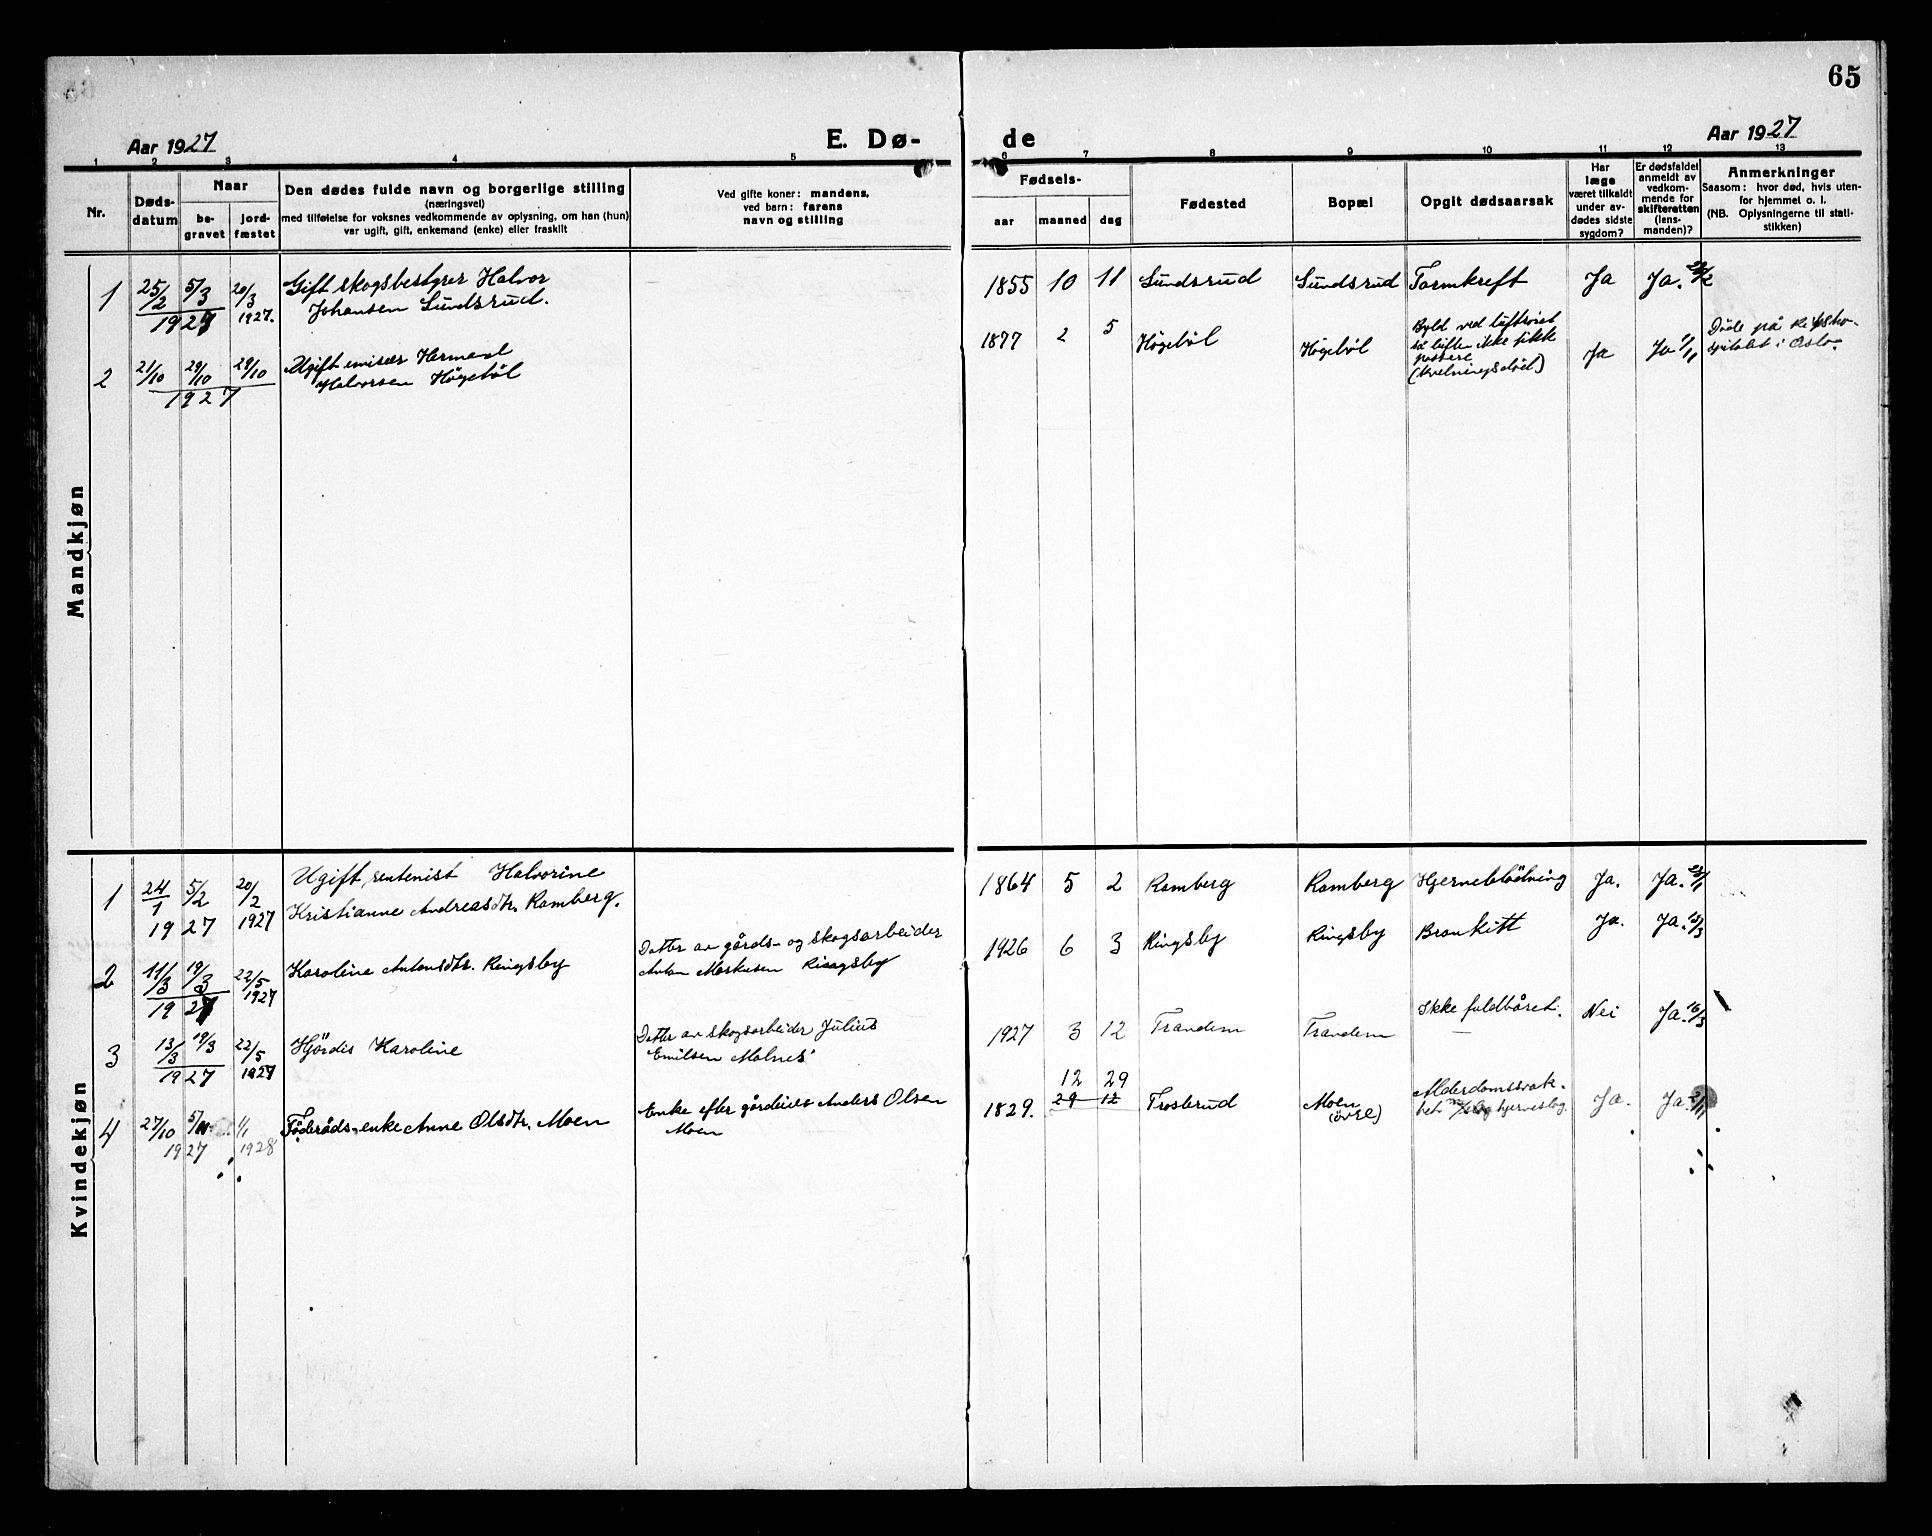 65
Aar 1927
E. Dø-
de
Aar 1927
1 2 3 4 5 6 7 8 9 10 11 12 13
Nr.
Døds-
datum
Naar
be-
gravet
jord-
fæstet
Den dødes fulde navn og borgerlige stilling
(næringsvei)
med tilføielse for voksnes vedkommende av oplysning, om han (hun)
var ugift, gift, enkemand (enke) eller fraskilt
Ved gifte koner: mandens,
ved barn: farens
navn og stilling
Fødsels-
aar maaned dag
Fødested
Bopæl
Opgit dødsaarsak
Har
læge
været tilkaldt
under av-
dødes sidste
sygdom?
Er dødsfaldet
anmeldt av
vedkom-
mende for
skifteretten
(lens-
manden)?
Anmerkninger
Saasom: hvor død, hvis uten-
for hjemmet o. l.
(NB. Oplysningerne til stati-
stikken)
Mandkjøn
1 25/2 5/3 20/3 Gift skogsbestyrer Halvor 1855 10 11 Sundsrud Sundsrud Tarmkreft Ja Ja.
1927 1927. Johansen Sundsrud.
2 21/10 29/10 29/10 Ugift emisær Herman 1877 2 5 Högeböl Högeböl Byld ved luftröret Ja Ja
1927 Halvorsen Högeböl
så luften ikke fikk
passere
(Kvelningsdöd)
Döde på Riksho-
spitalet i Oslo
Kvindekjøn
1 24/1 5/2 20/2 Ugift, rentenist Halvorine 1864 5 2 Ramberg Ramberg Hjerneblödning Ja. Ja.
1927 1927 Kristianne Andreasdtr. Ramberg.
2 11/3 19/3 22/5 Karoline Antonsdtr. Ringsby Datter av gårds- og skogsarbeider 1926 6 3 Ringsby Ringsby Bronkitt Ja. Ja. 15/3
1927 1927 Anton Markusen Ringsby
3 13/3 19/3 22/5 Hjördis Karoline Datter av skogsarbeider Julius 1927 3 12 Trandem Trandem Ikke fuldbåret. Nei Ja. 16/3
1927 1927 Emilsen Molnes
12 29
4 27/10 5/11 1/1 Föderåds-enke Anne Olsdtr. Moen Enke efter gårdeier Anders Olsen 1829. 29 12 Trosterud Moen Alderdomssvak- Ja. Ja
1927 1928 Moen (övre) het og hjerneslag.